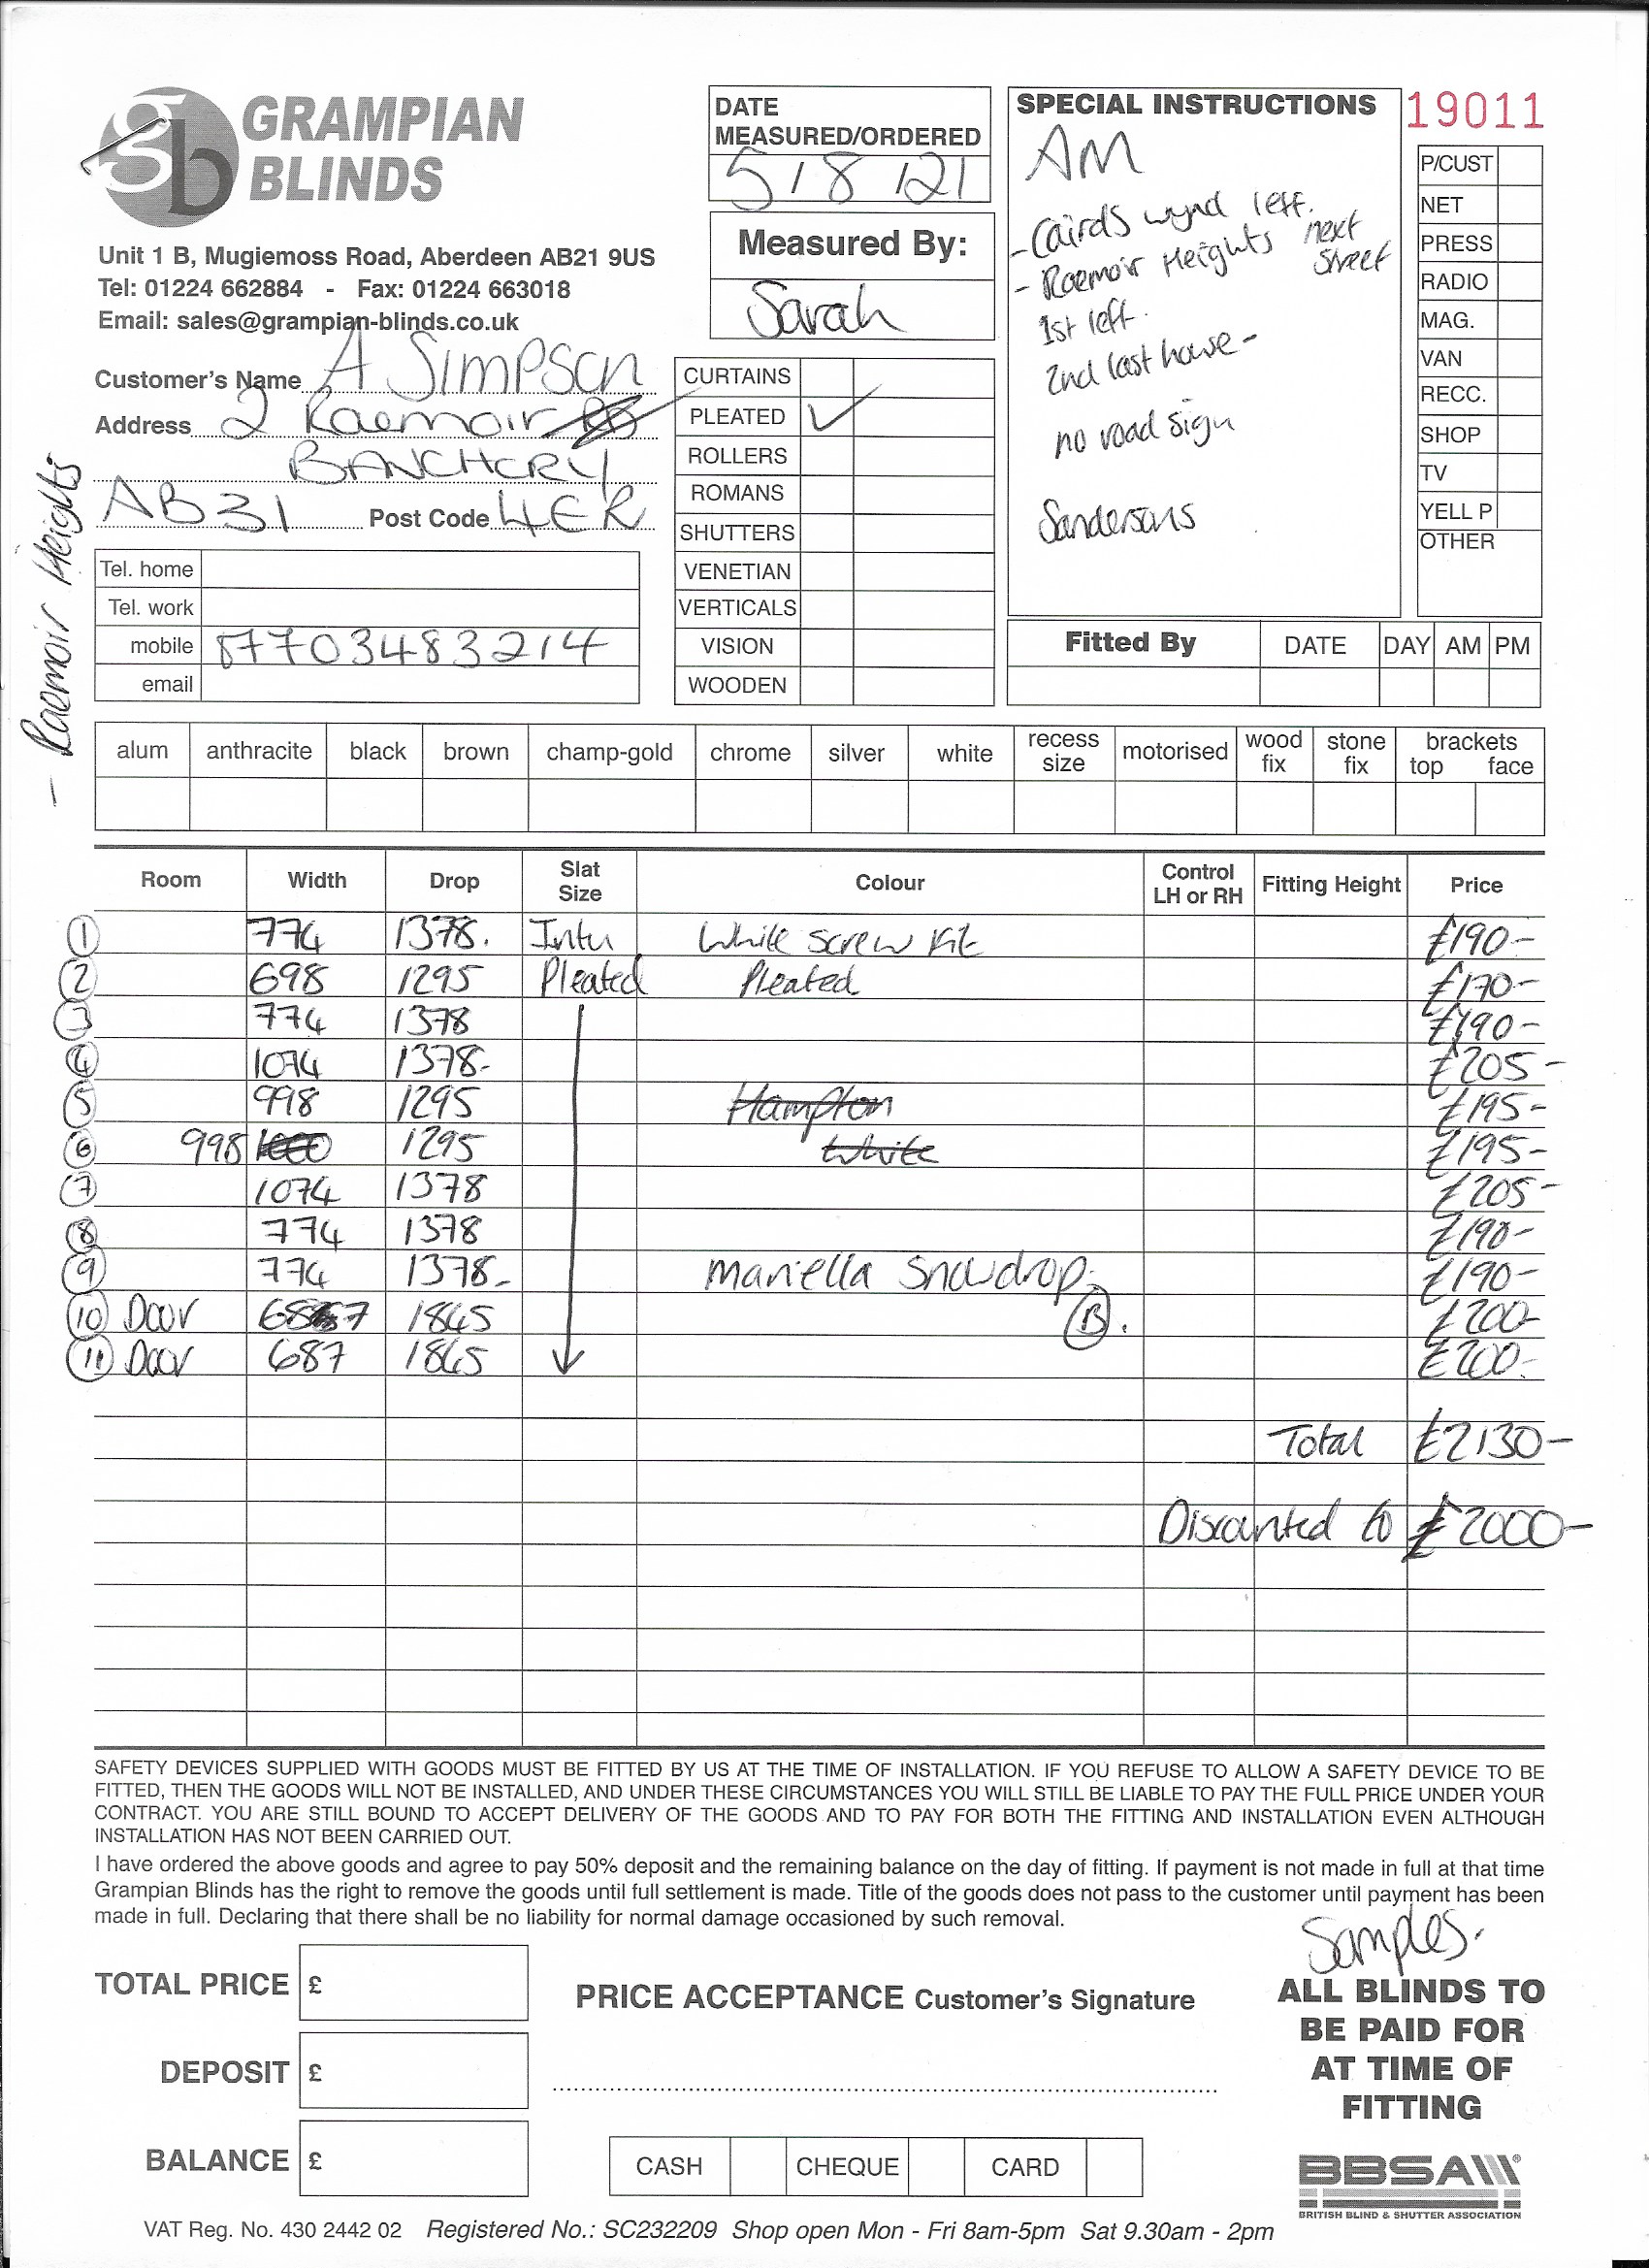 GRAMPIAN
BLINDS
Unit 1 B, Mugiemoss Road, Aberdeen AB21 9US
Tel: 01224 662884 - Fax: 01224 663018
Email: sales@grampian-blinds.co.uk
Customer's Name A SIMPSON
Address 2 Raemoir
BANCHORY
AB31 Post Code 4ER
- Raemoir Heights
Tel. home
Tel. work
mobile 07703483214
email
DATE
MEASURED/ORDERED
5/8/21
Measured By:
Sarah
CURTAINS
PLEATED ✓
ROLLERS
ROMANS
SHUTTERS
VENETIAN
VERTICALS
VISION
WOODEN
SPECIAL INSTRUCTIONS
AM
- Cairds wynd left.
- Raemoir Heights next
street
1st left.
2nd last house -
no road sign
Sandersons
19011
P/CUST
NET
PRESS
RADIO
MAG.
VAN
RECC.
SHOP
TV
YELL P
OTHER
Fitted By DATE DAY AM PM
alum anthracite black brown champ-gold chrome silver white recess size motorised wood fix stone fix brackets top face
Room Width Drop Slat Size Colour Control LH or RH Fitting Height Price
1 774 1378. Intu White screw kit £190-
2 698 1295 Pleated Pleated £170-
3 774 1378 £190-
4 1074 1378- £205-
5 998 1295 Hampton £195-
6 998 1000 1295 White £195-
7 1074 1378 £205-
8 774 1378 £190-
9 774 1378- Mariella Snowdrop. £190-
10 Door 687 1845 B. £200-
11 Door 687 1845 £200-
Total £2130-
Discounted to £2000-
SAFETY DEVICES SUPPLIED WITH GOODS MUST BE FITTED BY US AT THE TIME OF INSTALLATION. IF YOU REFUSE TO ALLOW A SAFETY DEVICE TO BE
FITTED, THEN THE GOODS WILL NOT BE INSTALLED, AND UNDER THESE CIRCUMSTANCES YOU WILL STILL BE LIABLE TO PAY THE FULL PRICE UNDER YOUR
CONTRACT. YOU ARE STILL BOUND TO ACCEPT DELIVERY OF THE GOODS AND TO PAY FOR BOTH THE FITTING AND INSTALLATION EVEN ALTHOUGH
INSTALLATION HAS NOT BEEN CARRIED OUT.
I have ordered the above goods and agree to pay 50% deposit and the remaining balance on the day of fitting. If payment is not made in full at that time
Grampian Blinds has the right to remove the goods until full settlement is made. Title of the goods does not pass to the customer until payment has been
made in full. Declaring that there shall be no liability for normal damage occasioned by such removal.
Samples.
TOTAL PRICE £
DEPOSIT £
BALANCE £
PRICE ACCEPTANCE Customer's Signature
CASH CHEQUE CARD
ALL BLINDS TO
BE PAID FOR
AT TIME OF
FITTING
BBSA
BRITISH BLIND & SHUTTER ASSOCIATION
VAT Reg. No. 430 2442 02 Registered No.: SC232209 Shop open Mon - Fri 8am-5pm Sat 9.30am - 2pm